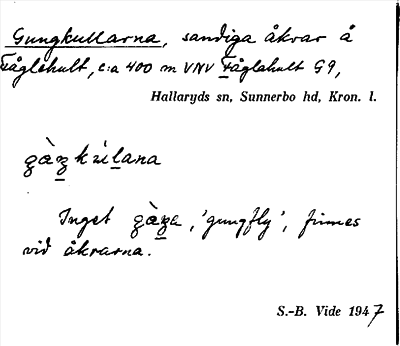 Gungkullarna, sandiga åkrar å
Fåglehult, c:a 400 m VNV Fåglehult G9,
Hallaryds sn, Sunnerbo hd, Kron. l.
Inget 'gungfly', finnes
vid åkrarna.
S.-B. Vide 1947